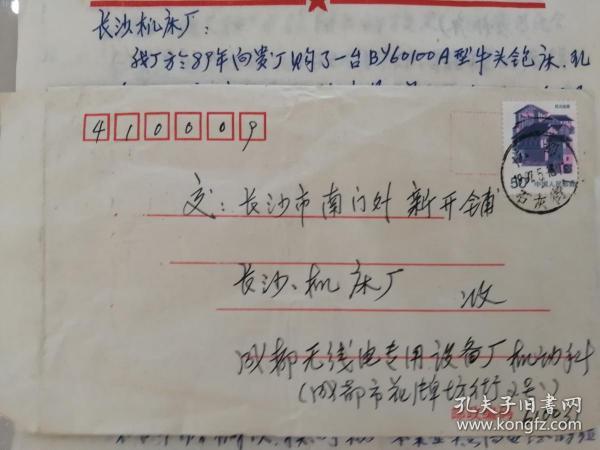 长沙机床厂:
我厂於89年向贵厂购了一台BY60100A型牛头刨床,现
410009
50
中国人民邮政
交:长沙市南门外新开铺
长沙机床厂
收
成都无线电专用设备厂机动科
(成都市花牌坊街2号)
610031
孔夫子旧书网
kongfz.com